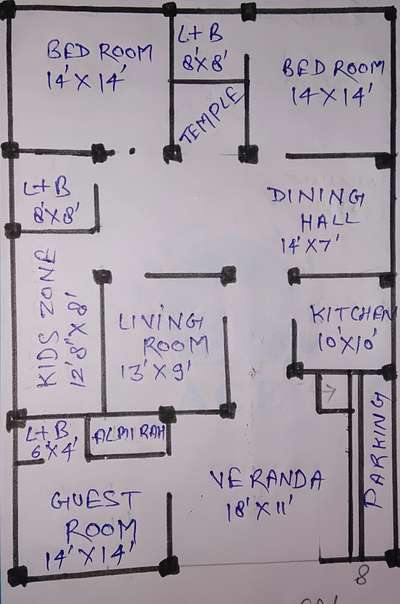 BED ROOM
14' X 14'
L+B
8'X8'
BED ROOM
14 X 14'
TEMPLE
L+B
8'X8'
DINING
HALL
14' X 7'
KIDS ZONE
12'8" X 8'
LIVING
ROOM
13' X 9'
KITCHAN
10'X10'
L+B
6'X4'
ALMIRAH
PARKING
VERANDA
18' X 11'
GUEST
ROOM
14' X 14'
8